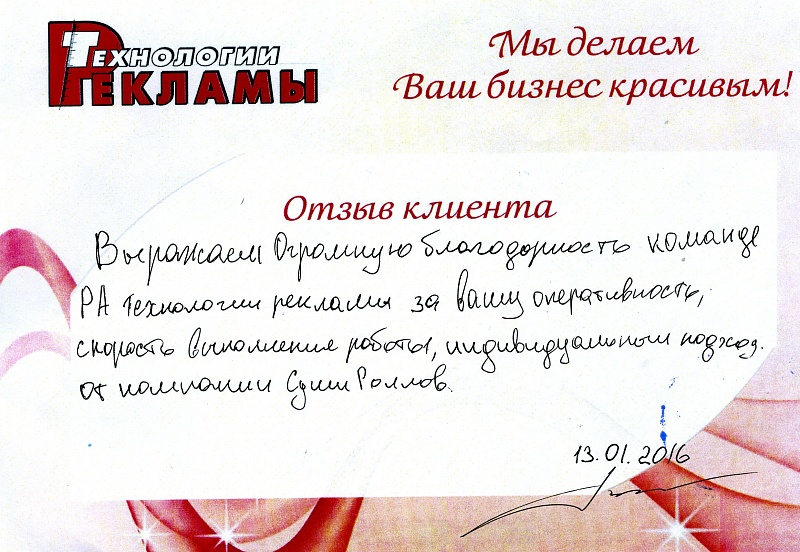 Технологии
Рекламы
Мы делаем
Ваш бизнес красивым!
Отзыв клиента
Выражаем Огромную благодарность команде
РА Технологии рекламы за вашу оперативность,
скорость выполнение работы, индивидуальный подход.
от компании Суши Роллов.
13.01.2016